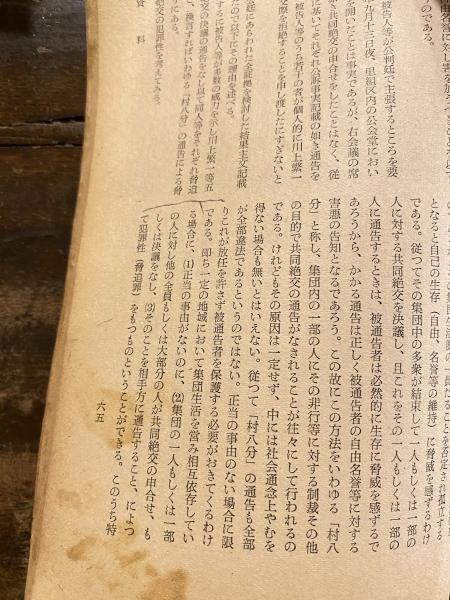 のである。
被告人等が公判廷で主張するところを要
年九月十三日夜、里組区内の公会堂におい
を開いたことは事実であるが、右会議の席
き共同絶交の申合せをしたことはなく、従
に基いてそれぞれ公訴事実記載の如き通告を
被告人等のうち若干の者が個人的に川上繁一
交際を拒絶することを申し渡したにすぎないと
廷にあらわれた全証拠を検討した結果主文記載
たので以下にその理由を述べる。
するに被告人等が多数の威力を示し川上繁一等五
交の決議の通告をなし以て同人等をそれぞれ脅迫
、換言すればいわゆる「村八分」の通告による脅
うにある。
絶交の犯罪性を考えてみる。
資料
となると自己の生存(自由、名誉等の維持)に脅威を感ずるわけ
である。従つてその集団中の多衆が結束して一人もしくは一部の
人に対する共同絶交を決議し、且これをその一人もしくは一部の
人に通告するときは、被通告者は必然的に生存に脅威を感ずるで
あろうから、かかる通告は正しく被通告者の自由名誉等に対する
害悪の告知となるであろう。この故にこの方法をいわゆる「村八
分」と称し、集団内の一部の人にその非行等に対する制裁その他
の目的で共同絶交の通告がなされることが往々にして行われるの
である。けれどもその原因は一定せず、中には社会通念上やむを
得ない場合も無いとはいえない。従つて「村八分」の通告も全部
が全部違法であるというのではない。正当の事由のない場合に限
りこれが放任を許さず被通告者を保護する必要がおきてくるわけ
である。即ち一定の地域において集団生活を営み相互依存してい
る場合に、(1)正当の事由がないのに、(2)集団の一人もしくは一部
の人に対し他の全員もしくは大部分の人が共同絶交の申合せ、も
しくは決議をなし、(3)そのことを相手方に通告すること、によつ
て犯罪性(脅迫罪)をもつものということができる。このうち特
六五